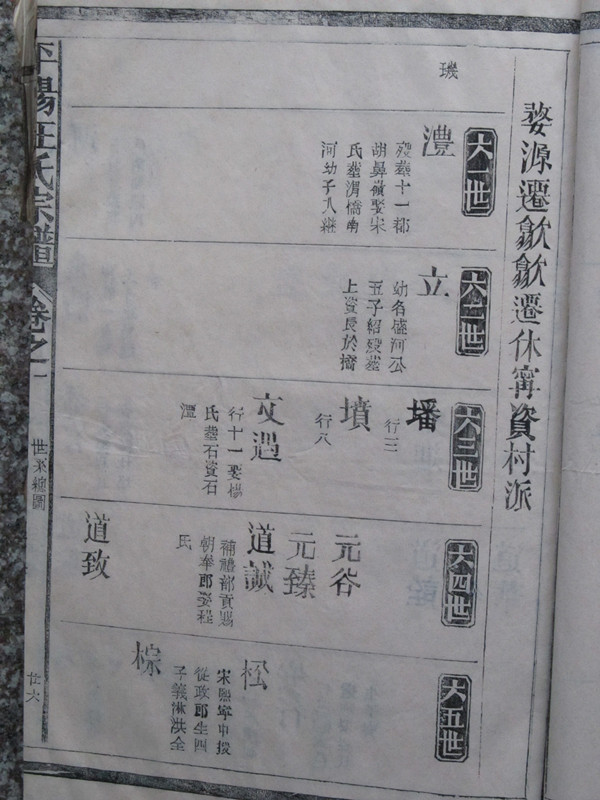 婺源遷歙歙遷休寗資村派
璣
六一世
澧
歿塟十一都
胡鼻嶺娶宋
氏塟渭橋南
河幼子入継
六二世
立
幼名盛河公
五子紹歿塟
上資長於橋
六三世
墦
行三
墳
行八
文遇
行十一娶楊
氏塟石資石
潭
六四世
元谷
元臻
道誠
補禮部貢賜
朝奉郎娶程
氏
道致
六五世
松
宋熙寧中授
從政郎生四
子義懋洪全
棕
平陽汪氏宗譜
卷之一
世系總圖
廿六